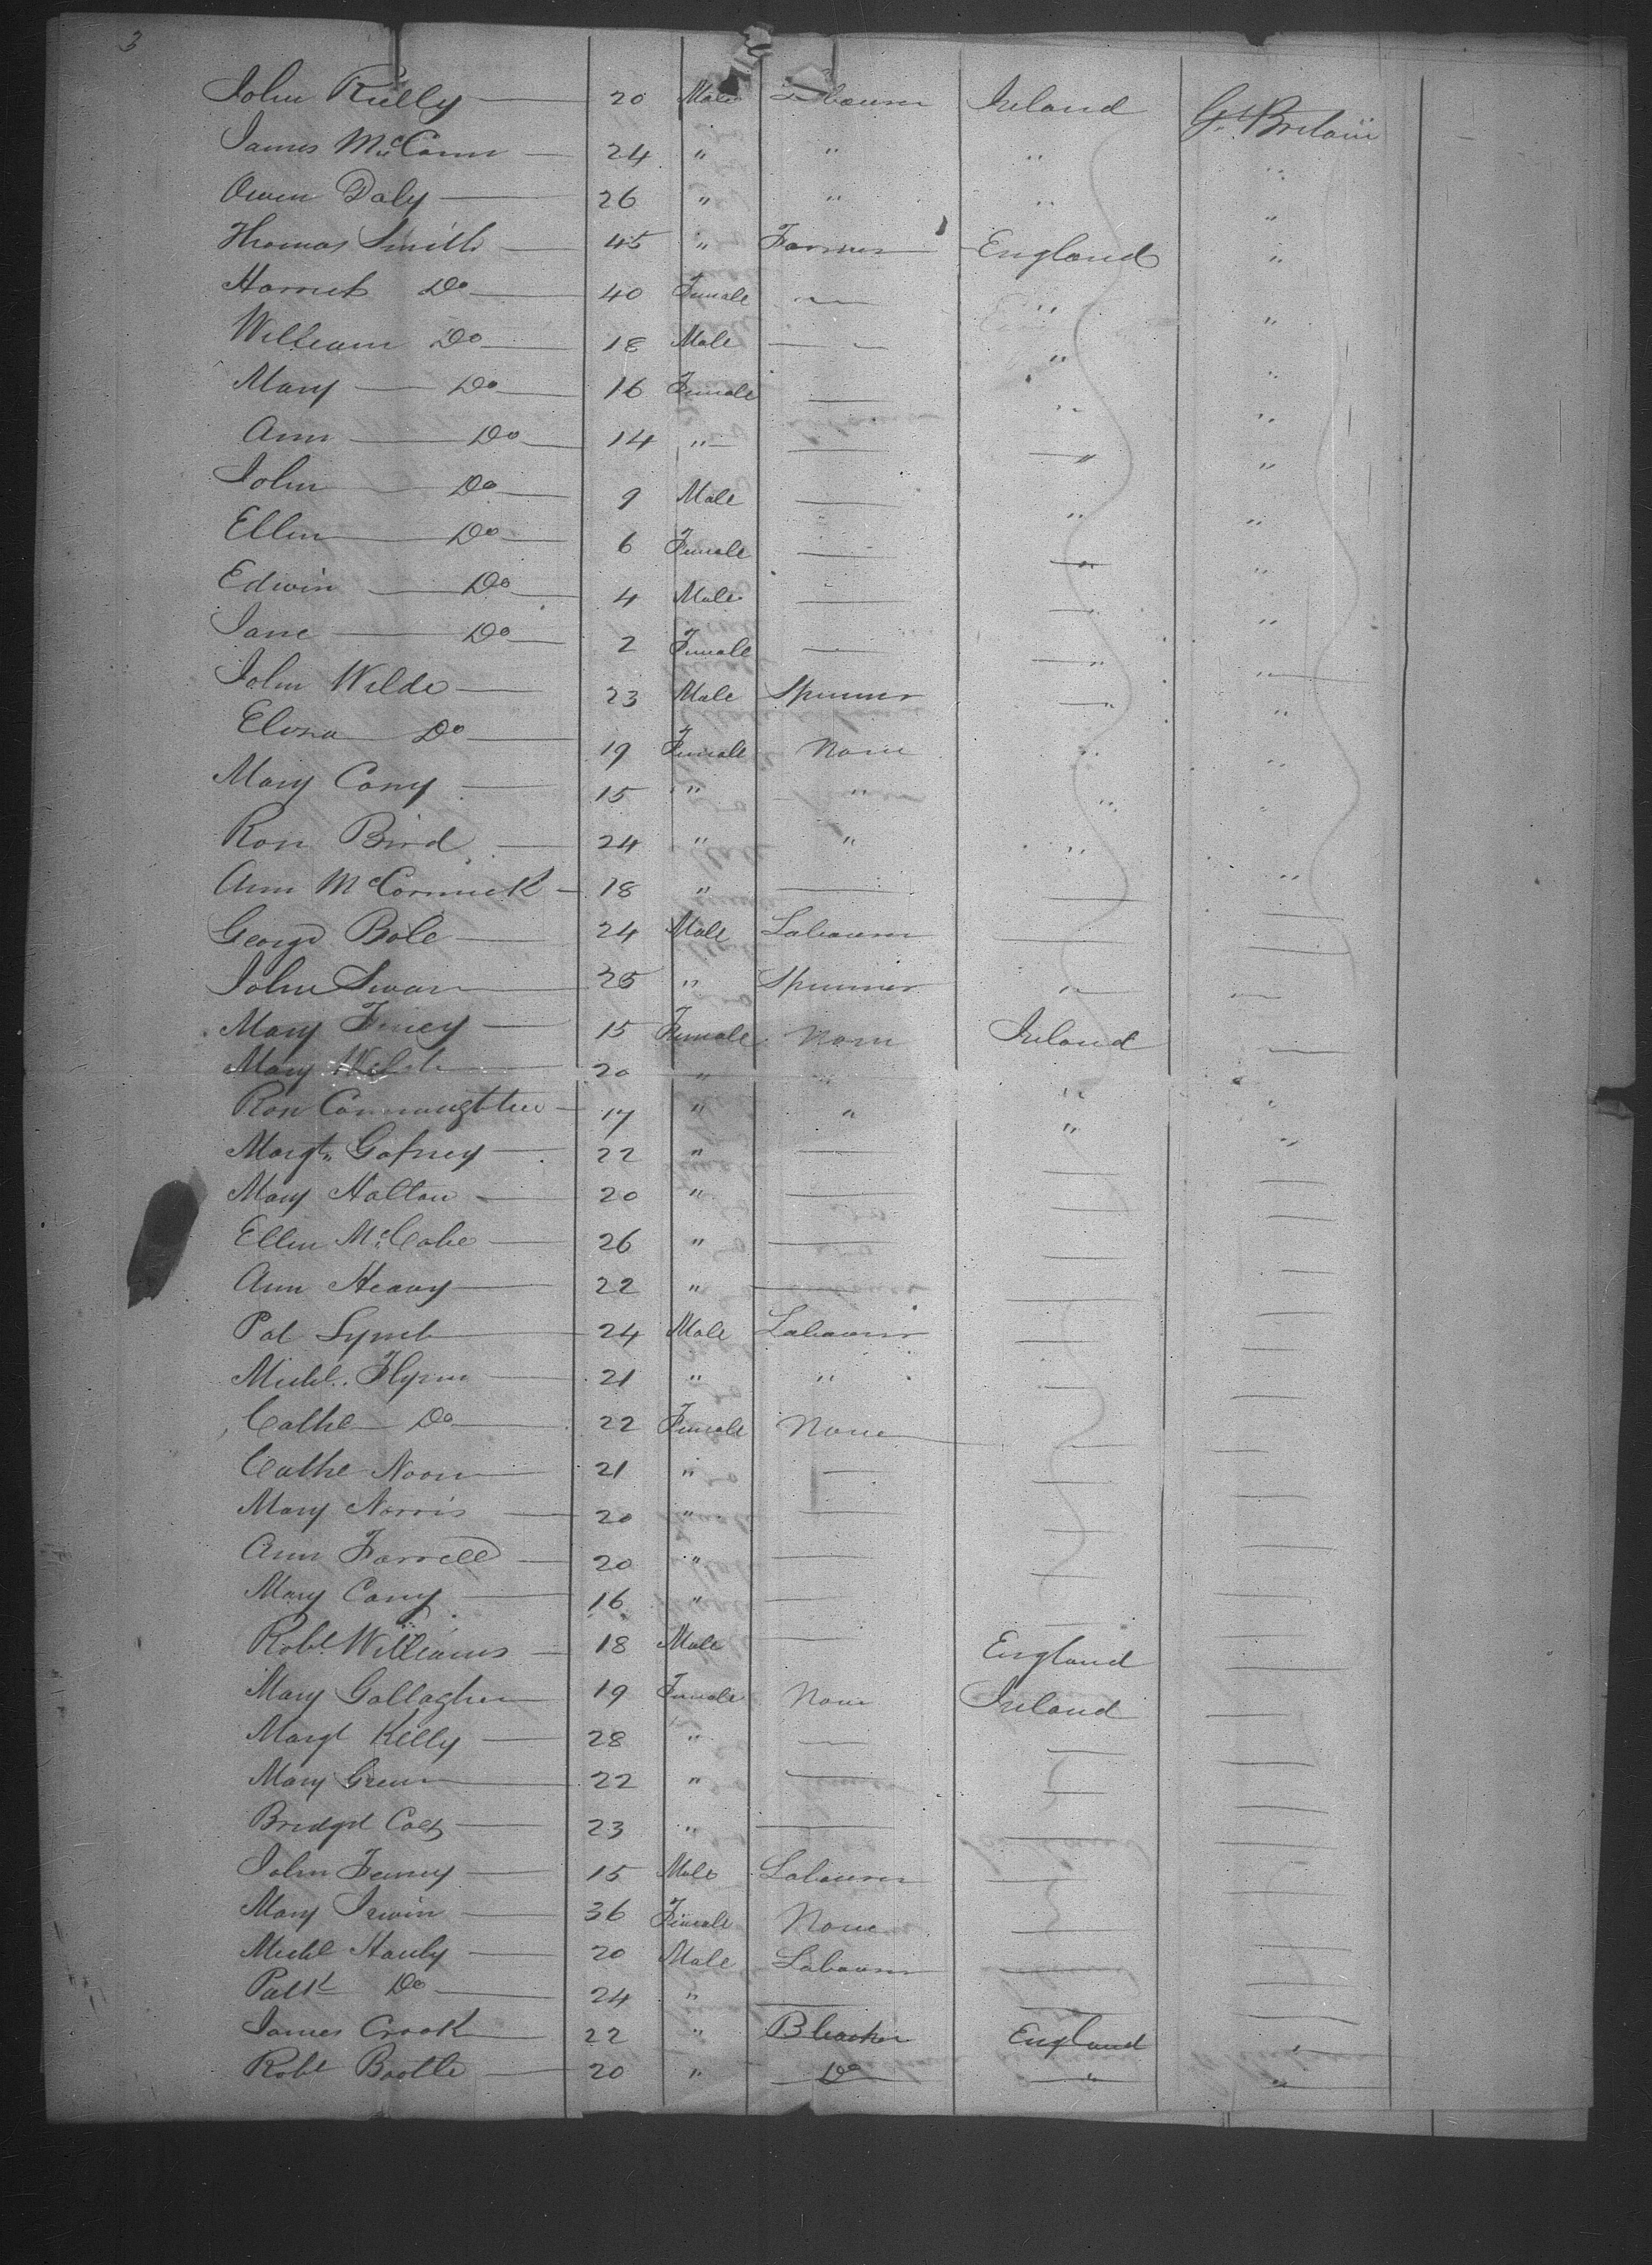 3
John Rielly 20 Male Labourer Ireland Gt Britain
James McCann 24 " " " "
Owen Daly 26 " " " "
Thomas Smith 45 " Farmer England "
Harriet Do 40 Female — " "
William Do 18 Male — " "
Mary Do 16 Female — " "
Ann Do 14 " — " "
John Do 9 Male — " "
Ellen Do 6 Female — " "
Edwin Do 4 Male — " "
Jane Do 2 Female — " "
John Wilde 23 Male Spinner " "
Do 19 Female None " "
Mary 15 " " " "
Bird 24 " " " "
Ann McCormick 18 " — — —
George Bole 24 Male Labourer — —
John Swan 25 " Spinner " "
Mary 15 Female None Ireland —
Mary Welsh 20 " " " "
Connaughten 17 " " " "
Margt Gafney 22 " — — —
Mary Halton 20 " — — —
Ellen McCabe 26 " — — —
Ann Heavy 22 " — — —
Pat Lynch 24 Male Labourer — —
Michl. Flynn 21 " " — —
Cathe Do 22 Female None — —
Cathe Noon 21 " — — —
Mary Norris 20 " — — —
Ann Farrell 20 " — — —
Mary 16 " — — —
Robt Williams 18 Male — England —
Mary Gallagher 19 Female None Ireland —
Margt Kelly 28 " — — —
Mary Green 22 " — — —
Bridget 23 " — — —
John Feeney 15 Male Labourer — —
Mary Irwin 36 Female None — —
Michl Hanly 20 Male Labourer — —
Patk Do 24 " — — —
James Crook 22 " Bleacher England "
Robt Bootle 20 " Do " "